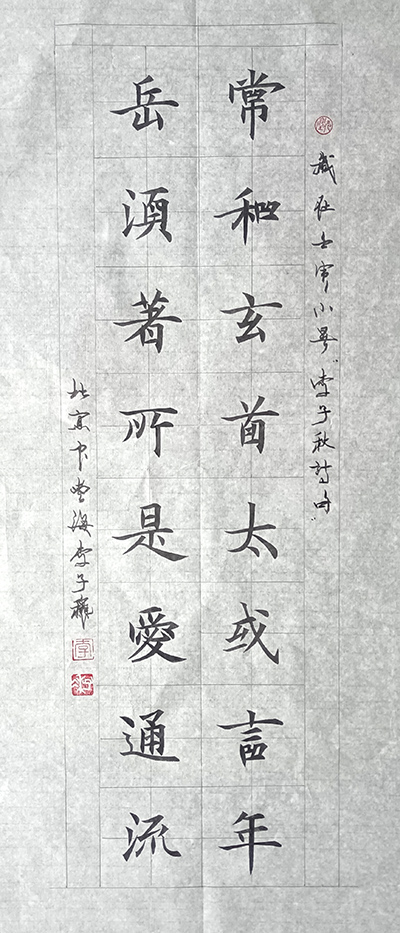 歲在壬寅小暑"李子秋詩句"
常和玄首太或言年
岳須著所是愛通流
北京中 海李子